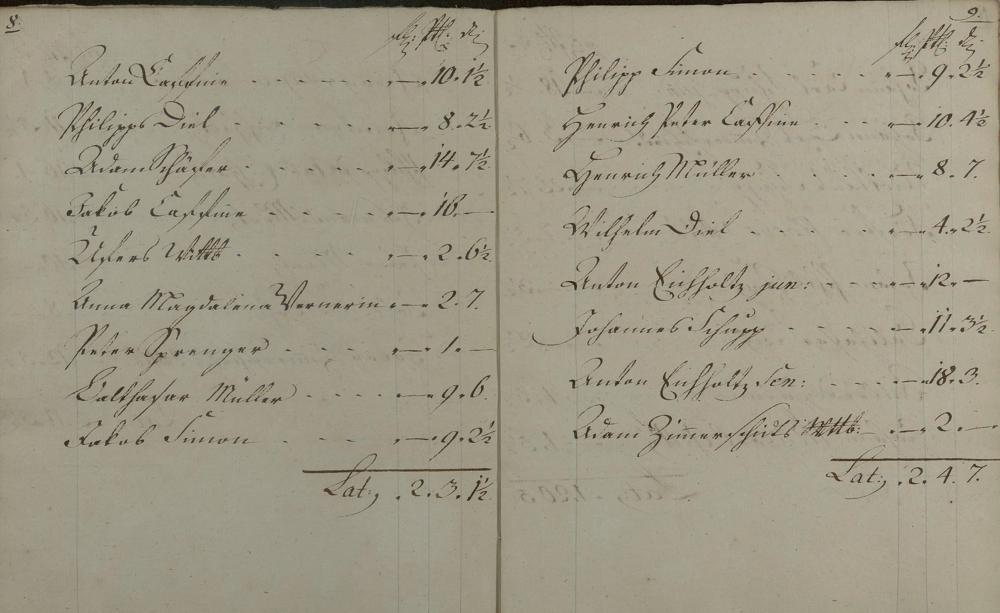 8.
Anton - 10. 1½
Philipps Diel - 8. 2½
Adam Schäfer - 14. 7½
Jakob Cassine - 16. -
Wittib - 2. 6½
Anna Magdalena Wernerin - 2. 7.
Peter Sprenger - 1. -
Balthasar Müller - 9. 6.
Jakob Simon - 9. 2½
Lat: 2. 3. 1½
9.
Philipp Simon - 9. 2½
Henrich Peter Cassine - 10. 4½
Henrich Müller - 8. 7.
Wilhelm Diel - 4. 2½
Anton Eichholtz jun: - 12. -
Johannes Schupp - 11. 3½
Anton Eichholtz Sen: - 18. 3.
Adam Zimmerschieds Wttb: - 2. -
Lat: 2. 4. 7.